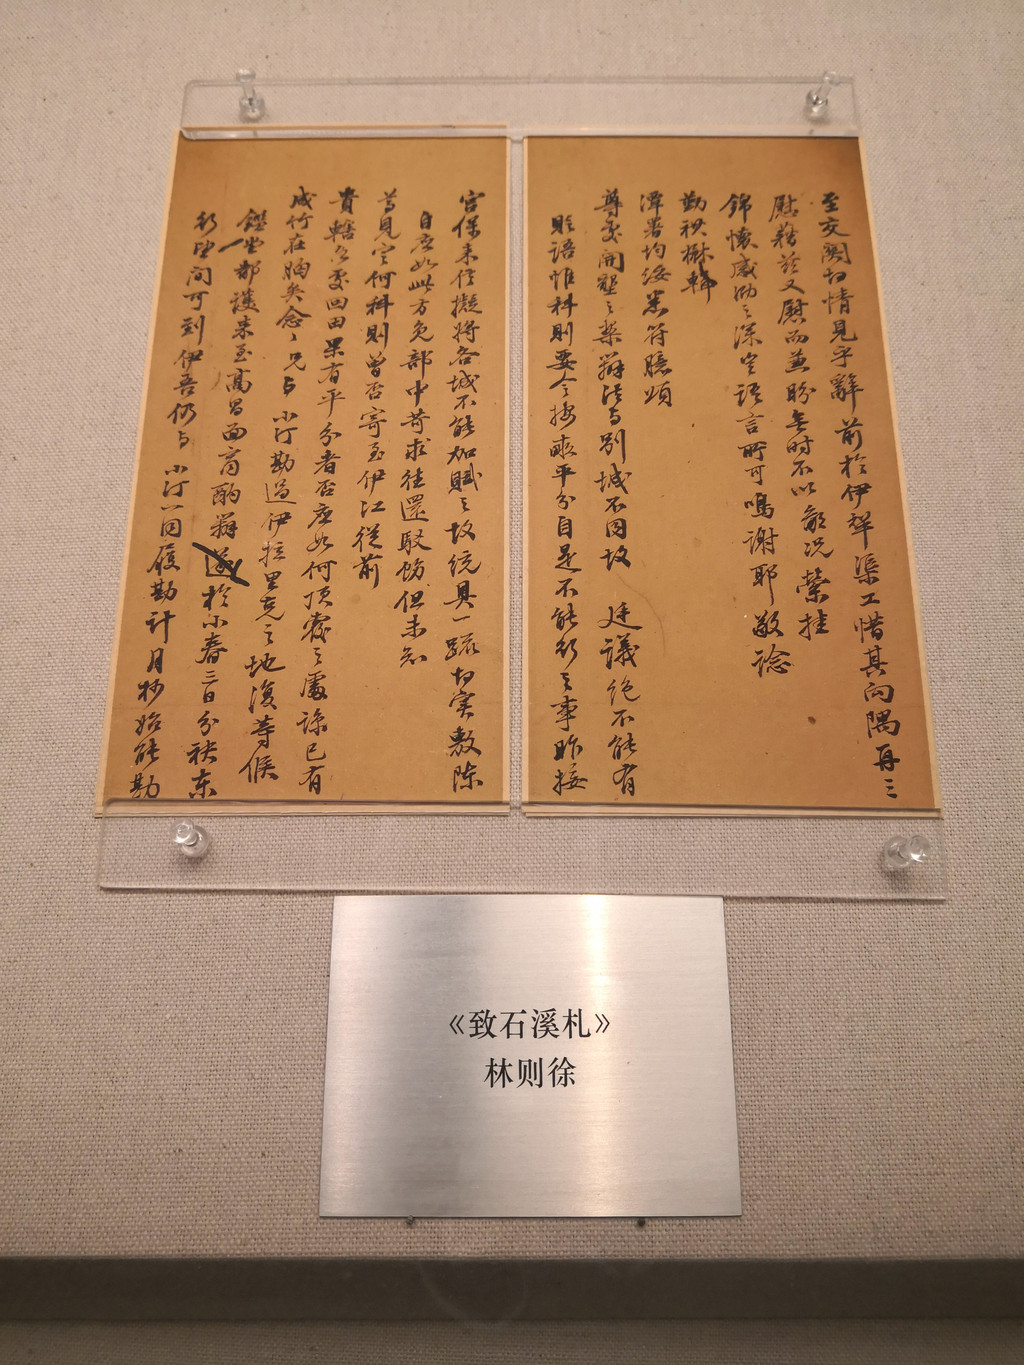 至交關切情見乎辭前於伊犁渠工惜其向隅再三
慰藉茲又慰而兼盼無時不以鄙况縈挂
錦懷感泐之深寧語言所可鳴謝耶敬諗
勤祺楙輯
潭署均綏悉符臆頌
尊處開墾之案辦法与別城不同故 廷議絕不能有
賒語惟科則要令按畝平分自是不能行之事昨接
宮保來信擬將各城不能加賦之故統具一疏切实敷陳
自應如此方免部中苛求往還駁飭但未知
尊見定何科則曾否寄至伊江從前
貴轄各處回田果有平分者否应如何頂覆之處諒已有
成竹在胸矣念、兄与小汀勘過伊拉里克之地復等候
鑑堂都護来至高昌面商酌辦於小春三日分袂东
行望間可到伊吾仍与小汀一同履勘計月杪始能勘
《致石溪札》
林则徐